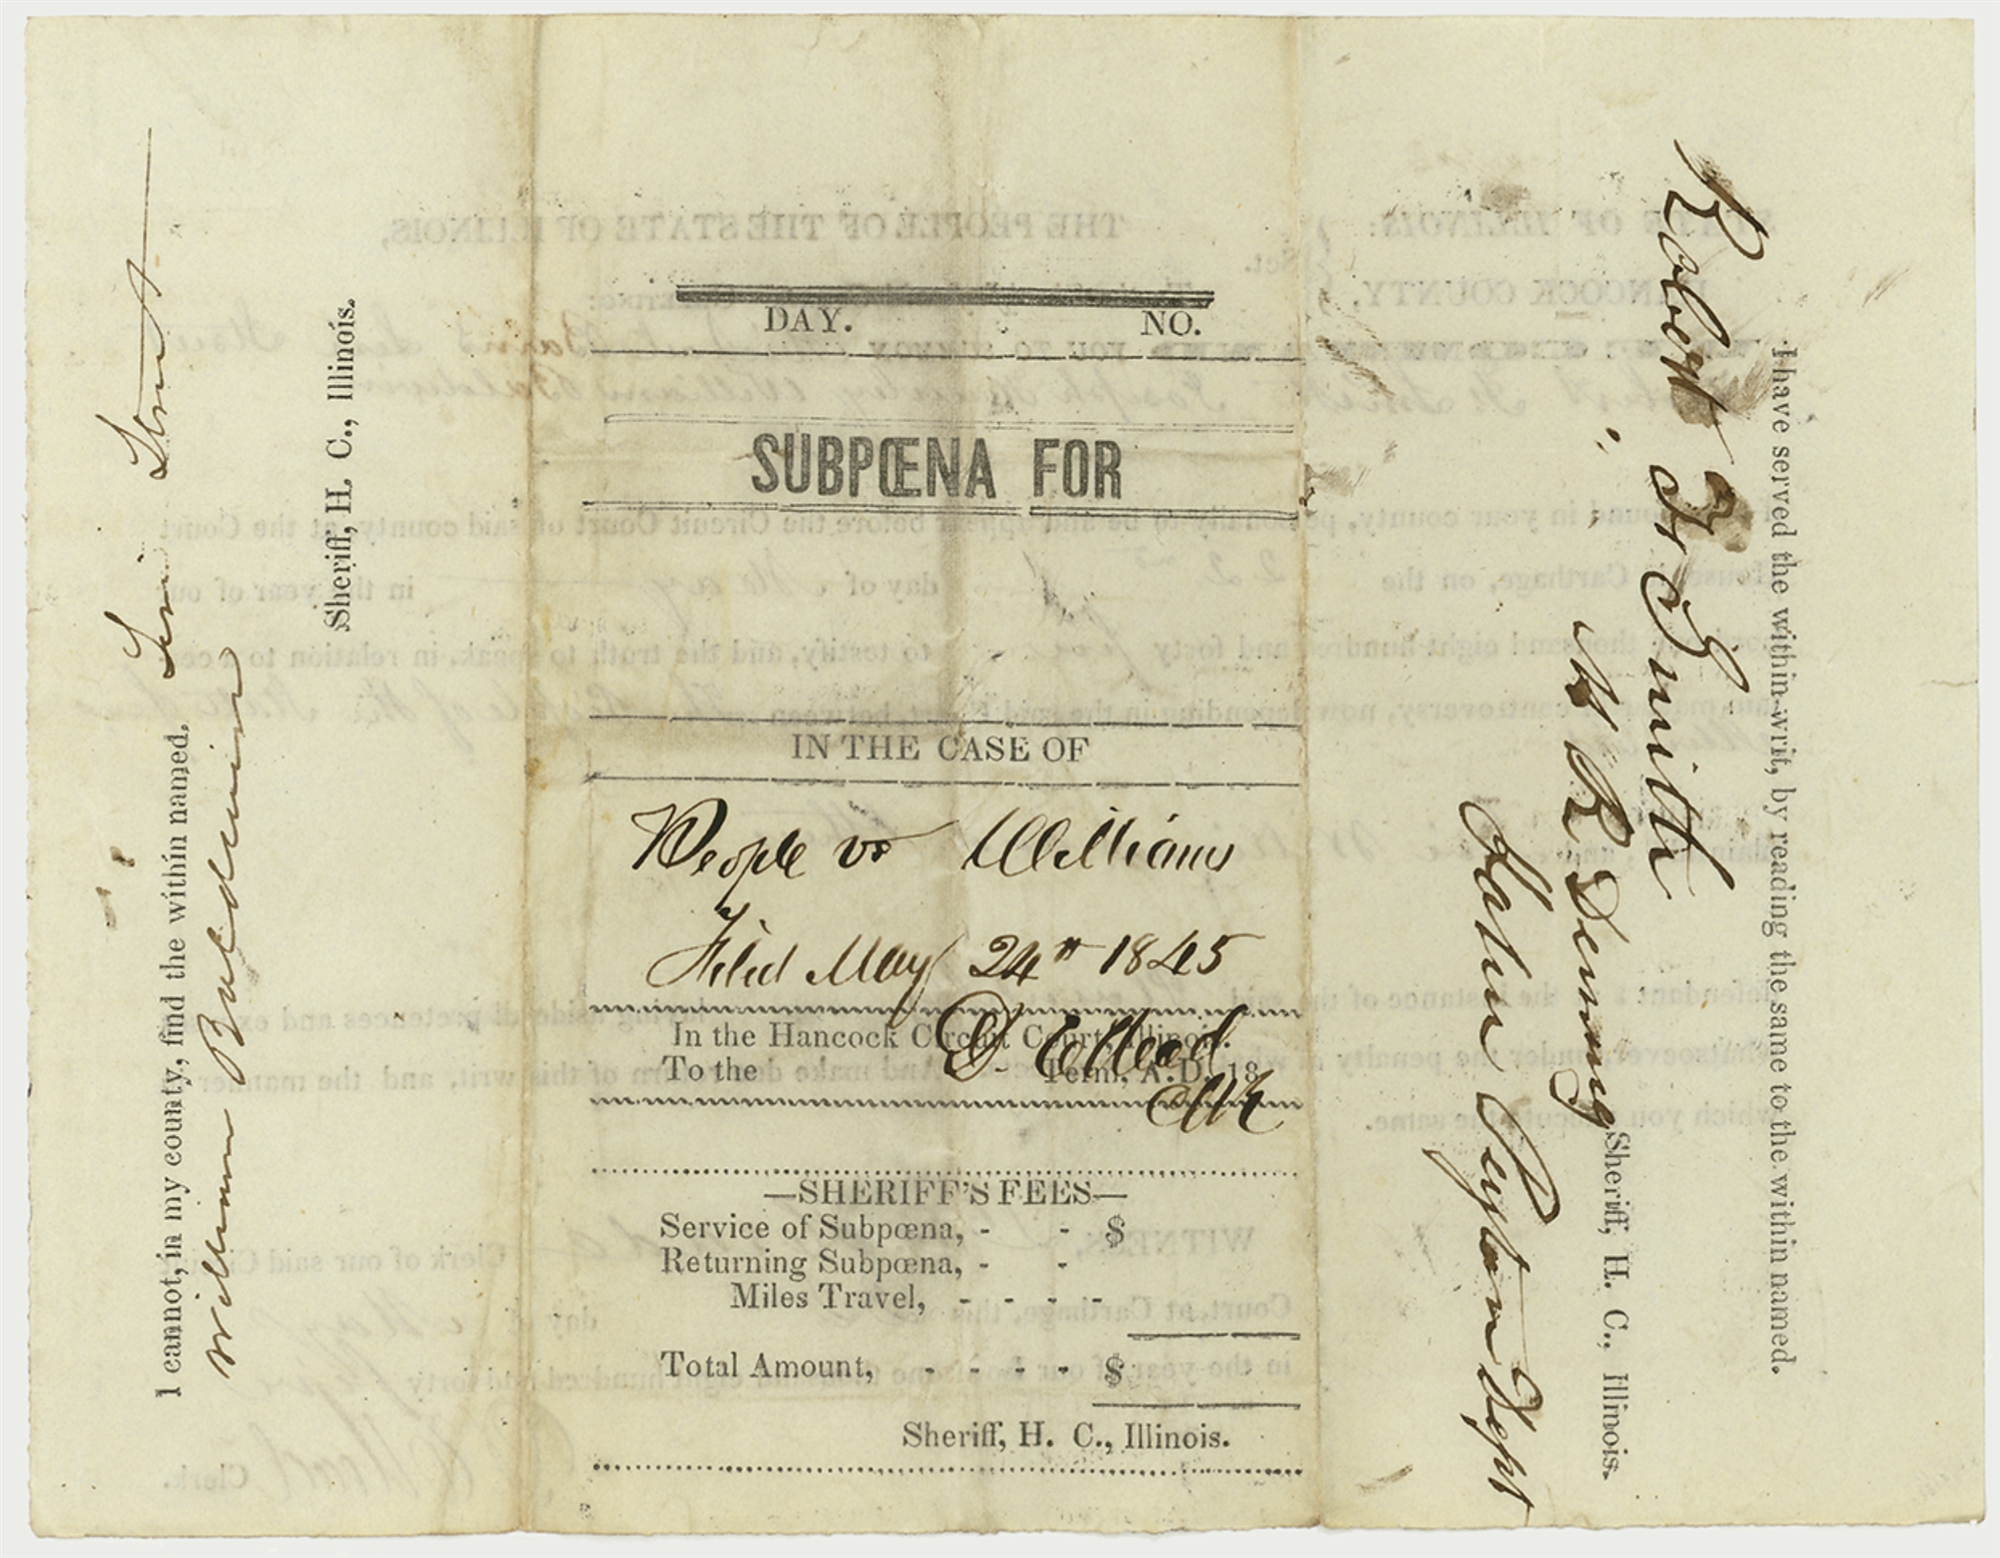 I cannot, in my county, find the within named.
Levi Street
William Baldwin
Sheriff, H. C., Illinois.
DAY. NO.
SUBPŒNA FOR
IN THE CASE OF
People vs Williams
Filed May 24th 1845
In the Hancock Circuit Court, Illinois.
D E Head
To the - Term, A. D. 18
Clk
—SHERIFF'S FEES—
Service of Subpœna, - - $
Returning Subpœna, - -
Miles Travel, - - - -
Total Amount, - - - - $
Sheriff, H. C., Illinois.
I have served the within writ, by reading the same to the within named.
Robert F Smith
M R Deming Sheriff, H. C., Illinois.
Dept